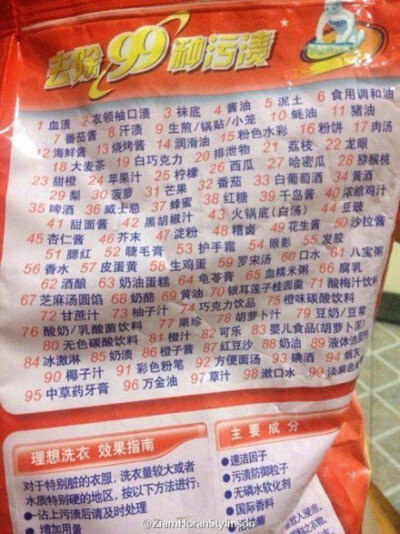 去除99种污渍
1 血渍 2 衣领袖口渍 3 袜底 4 酱油 5 泥土 6 食用调和油
7 番茄酱 8 汗渍 9 生煎/锅贴/小笼 10 蚝油 11 猪油
12 海鲜酱 13 烧烤酱 14 润滑油 15 粉色水彩 16 粉饼 17 肉汤
18 大麦茶 19 白巧克力 20 排泄物 21 荔枝 22 龙眼
23 甜橙 24 苹果汁 25 柠檬 26 西瓜 27 哈密瓜 28 猕猴桃
29 梨 30 菠萝 31 芒果 32 番茄 33 白葡萄酒 34 黄酒
35 啤酒 36 威士忌 37 蜂蜜 38 红糖 39 千岛酱 40 浓缩鸡汁
41 甜面酱 42 黑胡椒汁 43 火锅底(白汤) 44 豆豉
45 杏仁酱 46 芥末 47 淀粉 48 糟卤 49 花生酱 50 沙拉酱
51 腮红 52 睫毛膏 53 护手霜 54 眼影 55 发胶
56 香水 57 皮蛋黄 58 生鸡蛋 59 罗宋汤 60 口水 61 八宝粥
62 酒酿 63 奶油蛋糕 64 龟苓膏 65 血糯米粥 66 腐乳
67 芝麻汤圆馅 68 奶酪 69 黄油 70 银耳莲子桂圆羹 71 酸梅汁饮料
72 甘蔗汁 73 柚子汁 74 巧克力饮品 75 橙味碳酸饮料
76 酸奶/乳酸菌饮料 77 果珍 78 胡萝卜汁 79 豆奶/豆浆
80 无色碳酸饮料 81 橙汁 82 可乐 83 婴儿食品(胡萝卜泥)
84 冰激淋 85 奶渍 86 橙子酱 87 红豆沙 88 奶油 89 液体
90 椰子汁 91 彩色粉笔 92 方便面汤 93 碘酒 94 烟灰
95 中草药牙膏 96 万金油 97 草汁 98 漱口水 99
理想洗衣 效果指南
对于特别脏的衣服、洗衣量较大或者
水质特别硬的地区,按以下方法进行:
●沾上污渍后请及时处理
●增加用量
主要成分
●速洁因子
●污渍防御粒子
●无磷水软化剂
●国际香料
@ZiamHoranStylinson